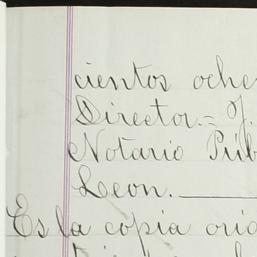 cientos oche
Director.= J.
Notario Púb
Leon.
Es la copia orig